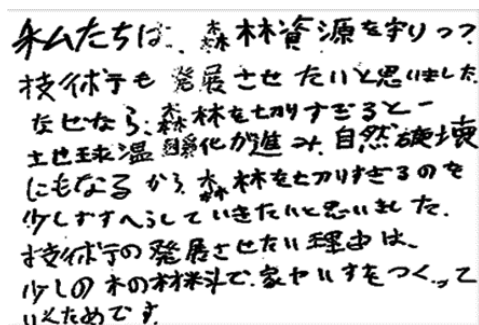 私たちは、森林資源を守りつつ
技術も発展させたいと思いました
なぜなら、森林を切りすぎると
地球温暖化が進み、自然破壊
にもなるから、森林を切りすぎるのを
少しずつへらしていきたいと思いました。
技術の発展させたい理由は、
少しの木の材料で、家やいすをつくって
いくためです。